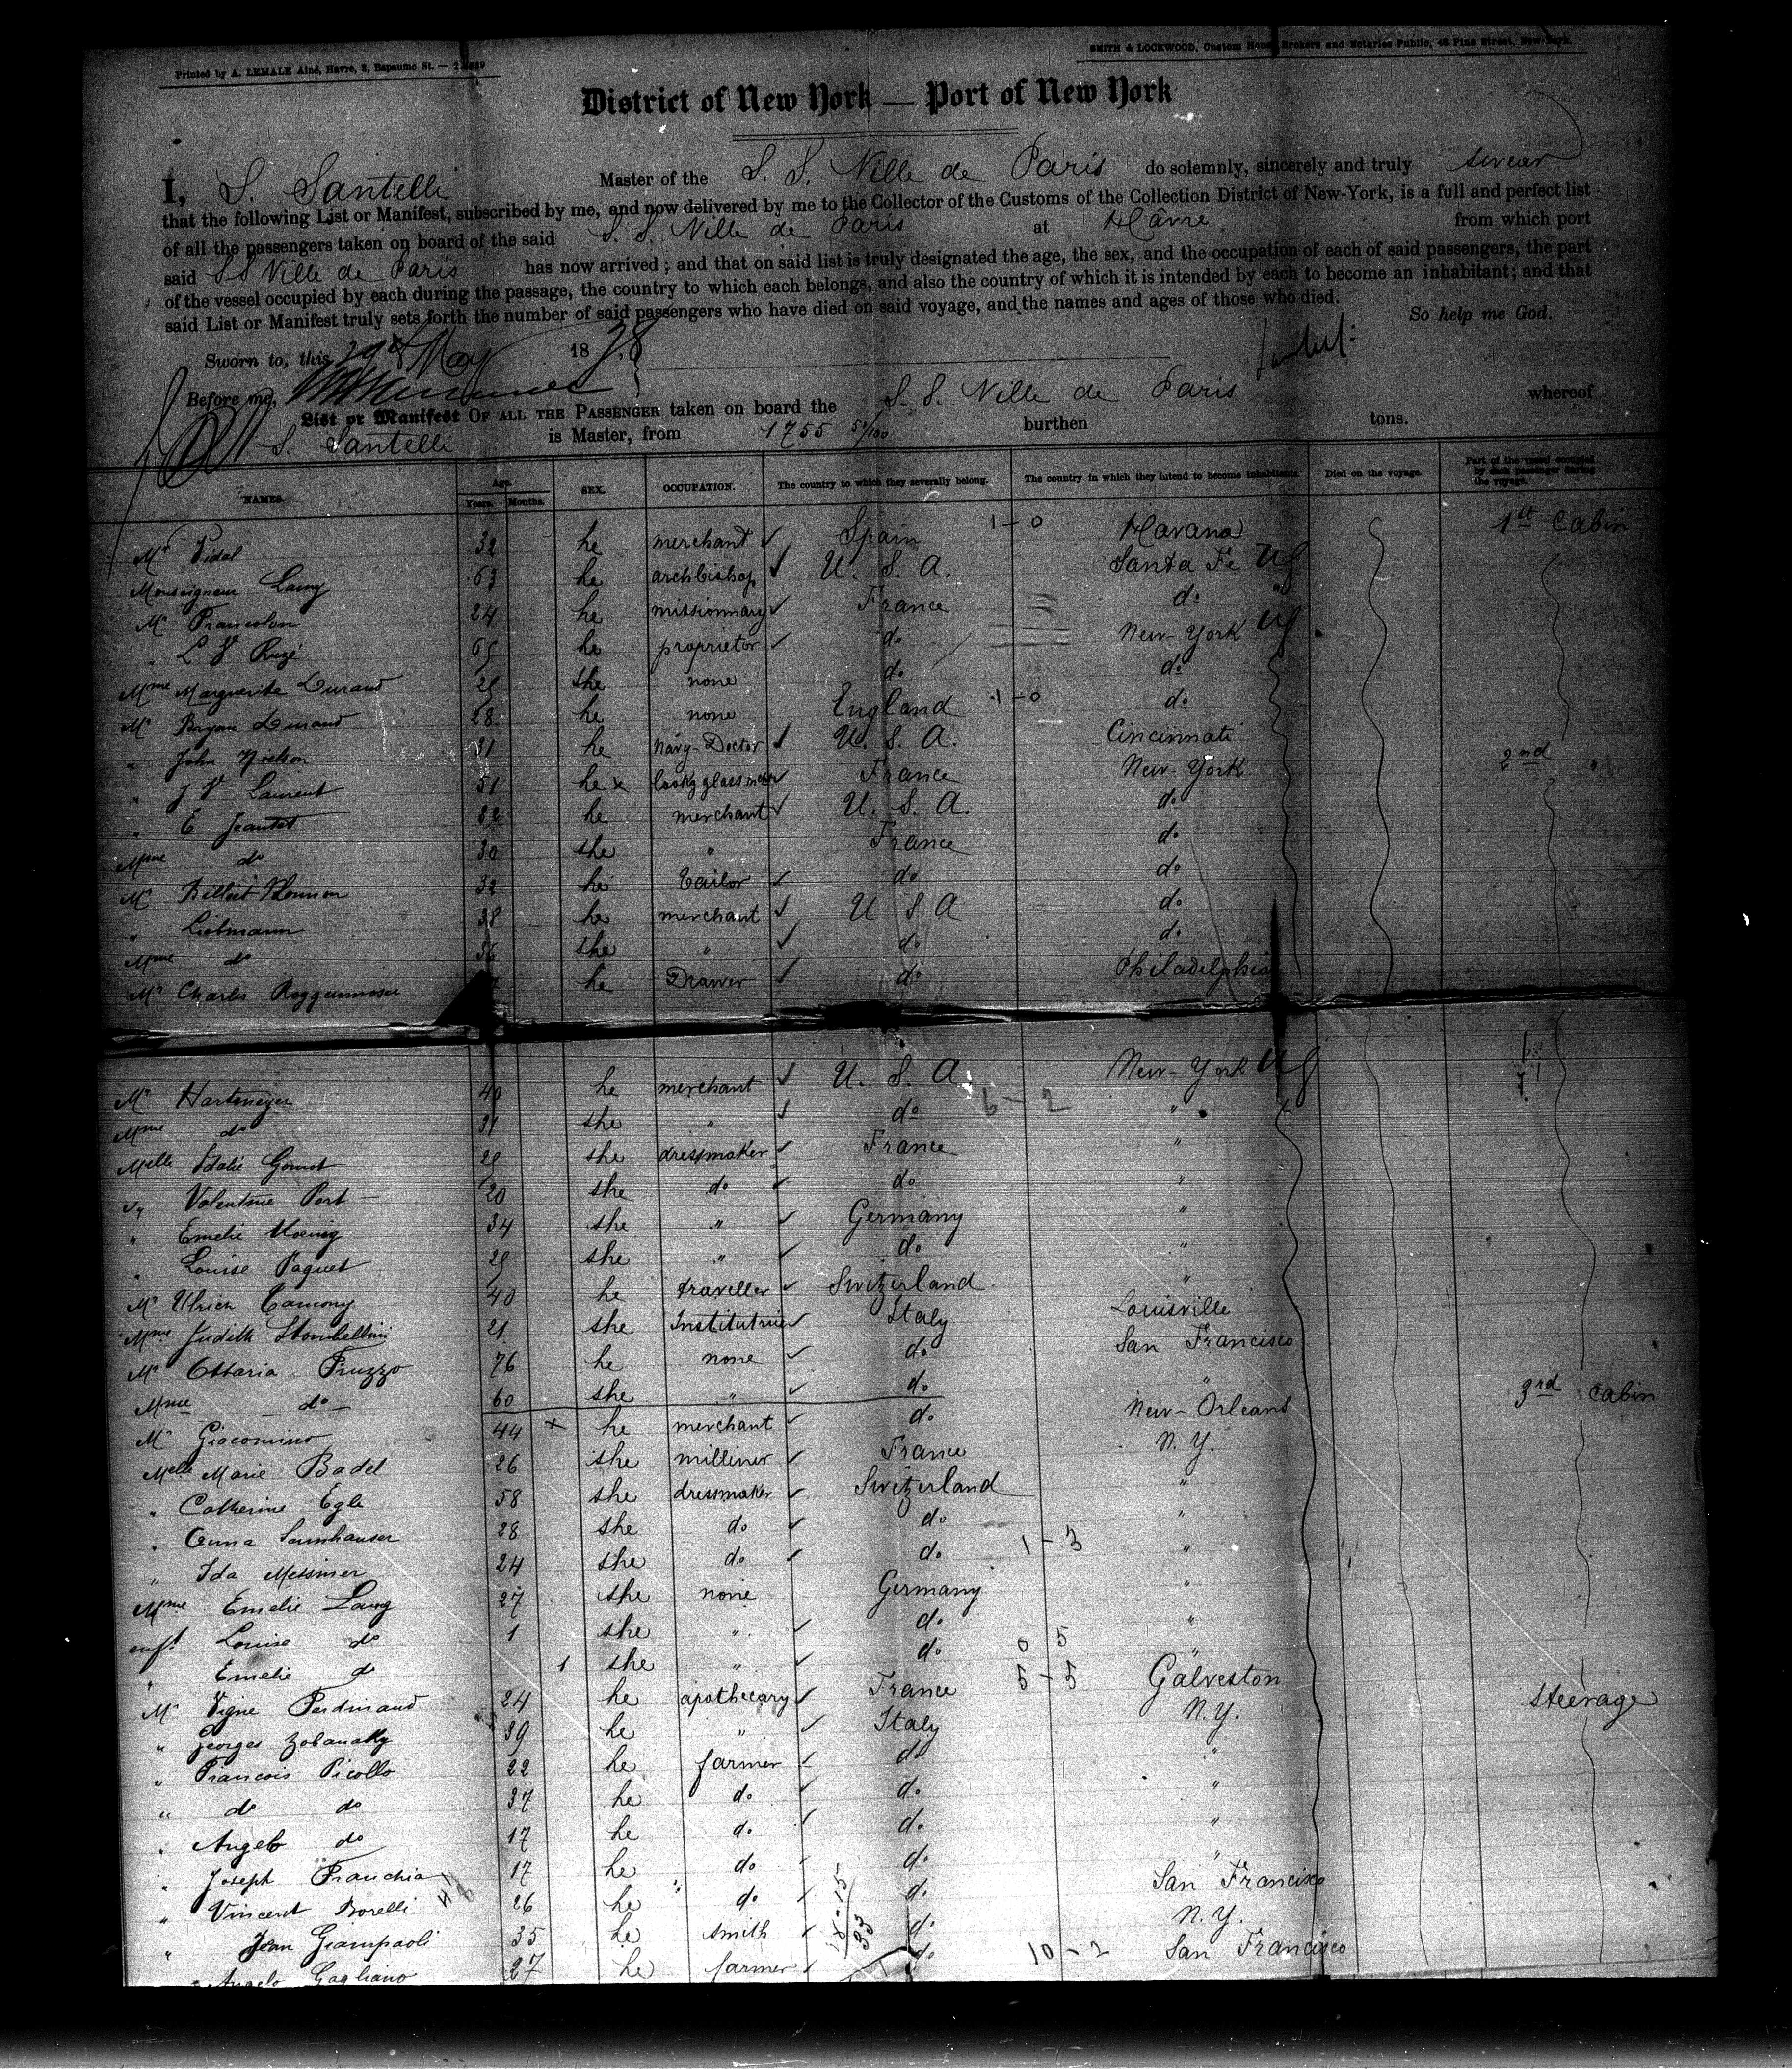 Printed by A. LEMALE Aîné, Havre, 3, Bapaume St. —
SMITH & LOCKWOOD, Custom House Brokers and Notaries Public, 48 Pine Street, New-York.
District of New York — Port of New York
I, S. Santelli Master of the S. S. Ville de Paris do solemnly, sincerely and truly swear
that the following List or Manifest, subscribed by me, and now delivered by me to the Collector of the Customs of the Collection District of New-York, is a full and perfect list
of all the passengers taken on board of the said S. S. Ville de Paris at Havre from which port
said SS Ville de Paris has now arrived; and that on said list is truly designated the age, the sex, and the occupation of each of said passengers, the part
of the vessel occupied by each during the passage, the country to which each belongs, and also the country of which it is intended by each to become an inhabitant; and that
said List or Manifest truly sets forth the number of said passengers who have died on said voyage, and the names and ages of those who died.
So help me God.
Sworn to, this 29th May 1878
Before me,
List or Manifest OF ALL THE PASSENGER taken on board the S. S. Ville de Paris whereof
S. Santelli is Master, from 1755 burthen tons.
NAMES. Age. Years. Months. SEX. OCCUPATION. The country to which they severally belong. The country in which they intend to become inhabitants. Died on the voyage. Part of the vessel occupied by each passenger during the voyage.
Mr Vidal 32 he merchant Spain 1-0 Havana 1st Cabin
Monseigneur Lamy 63 he archbishop U. S. A. Santa Fe
Mr Francolon 24 he missionnary France do
" L V Rugé 65 he proprietor do New-York
Mme Marguerite Durand he she none do do
Mr Bryan Durand 28 he none England 1-0 do
" John he Navy-Doctor U. S. A. Cincinnati
" J V Laurent 51 he x France New-York 2nd "
" E Jeantet 32 he merchant U. S. A. do
Mme do 30 she " France do
Mr 32 he tailor do do
" Liebmann 38 he merchant U S A do
Mme do 36 she " do do
Mr Charles Roggenmoser he Drawer do Philadelphia
Mr Hartmeyer 40 he merchant U. S. A. New-York
Mme do 31 she " do 6-2 "
Melle Idalie she dressmaker France "
" Valentine Port 20 she do do "
" Emelie Koenig 34 she " Germany "
" Louise Paquet 29 she " do "
Mr Ulrich Tamony 40 he traveller Switzerland "
Mme Judith Stombellini 21 she Institutrice Italy Louisville
Mr Ottaria Pruzzo 76 he none do San Francisco
Mme do 60 she " do "
Mr Giacomino 44 x he merchant do New-Orleans 3rd Cabin
Melle Marie Badel 26 she milliner France N. Y.
" Catherine Egle 58 she dressmaker Switzerland "
" Anna Sonnhauser 28 she do do "
" Ida Messmer 24 she do do 1-3 "
Mme Emelie Lang 27 she none Germany "
enft Louise do 1 she " do "
" Emelie do 1 she " do 0 5 "
Mr Vigne Ferdinand 24 he apothecary France 5-5 Galveston
" Georges 39 he " Italy N. Y. steerage
" Francois Picollo 22 he farmer do "
" do do 37 he do do "
" Angelo do 17 he do do "
" Joseph Franchia 17 he do do "
" Vincent Borelli 26 he do do San Francisco
" Jean Giampaoli 35 he smith do N. Y.
" Angelo Gagliano 27 he farmer do 10-2 San Francisco